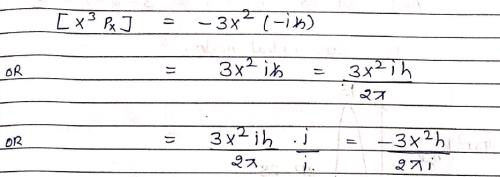 [x³ Px] = -3x² (-iħ)
OR = 3x² iħ = 3x² ih / 2π
OR = 3x² ih / 2π · i / i = -3x² h / 2πi